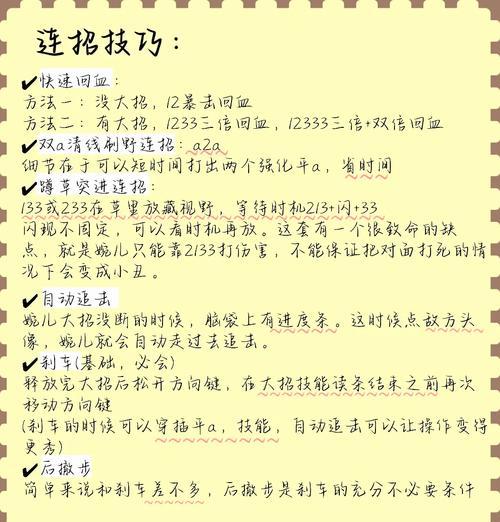 连招技巧：
✔快速回血：
方法一：没大招，12暴击回血
方法二：有大招，1233三倍回血，12333三倍+双倍回血
✔双a清线刷野连招：a2a
细节在于可以短时间打出两个强化平a，省时间
✔蹲草突进连招：
133或233在草里放藏视野，等待时机213+闪+33
闪现不固定，可以看时机再放。这套有一个很致命的缺
点，就是婉儿只能靠2133打伤害，不能保证把对面打死的情
况下会变成小丑。
✔自动追击
婉儿大招没断的时候，脑袋上有进度条。这时候点敌方头
像，婉儿就会自动走过去追击。
✔刹车(基础，必会)
释放完大招后松开方向键，在大招技能读条结束之前再次
移动方向键
(刹车的时候可以穿插平a，技能，自动追击可以让操作变得
更秀)
✔后撤步
简单来说和刹车差不多，后撤步是刹车的充分不必要条件